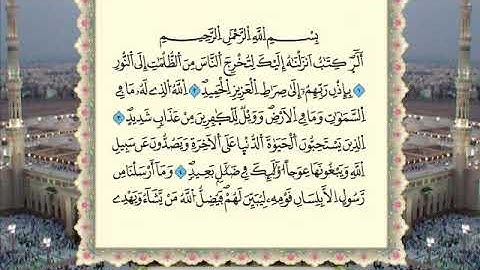 بِسْمِ اللَّهِ الرَّحْمَٰنِ الرَّحِيمِ
أَلَٓرۖ كِتَٰبٌ اَنزَلْنَٰهُ إِلَيْكَ لِتُخْرِجَ النَّاسَ مِنَ الظُّلُمَٰتِ إِلَى النُّورِ
١ بِإِذْنِ رَبِّهِمُۥٓ إِلَىٰ صِرَٰطِ الْعَزِيزِ الْحَمِيدِۖ ٢ اللَّهُ الذِے لَهُۥ مَا فِے
السَّمَٰوَٰتِ وَمَا فِے الْاَرْضِۖ وَوَيْلٌ لِّلْكَٰفِرِينَ مِنْ عَذَابٍ شَدِيدٍۖ ٣
الذِينَ يَسْتَحِبُّونَ الْحَيَوٰةَ الدُّنْيَا عَلَى الْاَخِرَةِ وَيَصُدُّونَ عَن سَبِيلِ
اللَّهِ وَيَبْغُونَهَا عِوَجاً اُوْلَٰٓئِكَ فِے ضَلَٰلٍ بَعِيدٍۖ ٤ وَمَآ أَرْسَلْنَا مِن
رَّسُولٍ اِلَّا بِلِسَانِ قَوْمِهِۦ لِيُبَيِّنَ لَهُمْۖ فَيُضِلُّ اللَّهُ مَنْ يَّشَآءُ وَيَهْدِے